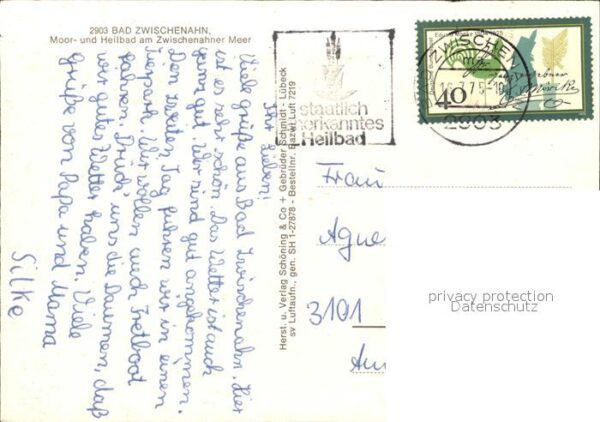 2903 BAD ZWISCHENAHN,
Moor- und Heilbad am Zwischenahner Meer
Ihr Lieben!
Viele grüße aus Bad Zwischenahn. Hier
ist es sehr schön. Das Wetter ist auch
ganz gut. Wir sind gut angekommen.
Den zweiten Tag fuhren wir in einen
Tierpark. Wir wollen auch Tretboot
fahren. Drückt uns die Daumen, daß
wir gutes Wetter haben. Viele
Grüße von Papa und Mama
Silke
Herst. u. Verlag Schöning & Co + Gebrüder Schmidt - Lübeck
sv Luftaufn., gen. SH 1-27878 - Bestellnr. Bazwi Luft 7219
staatlich
anerkanntes
Heilbad
ZWISCHEN
2903
40
Frau
Agne
3101
privacy protection
Datenschutz